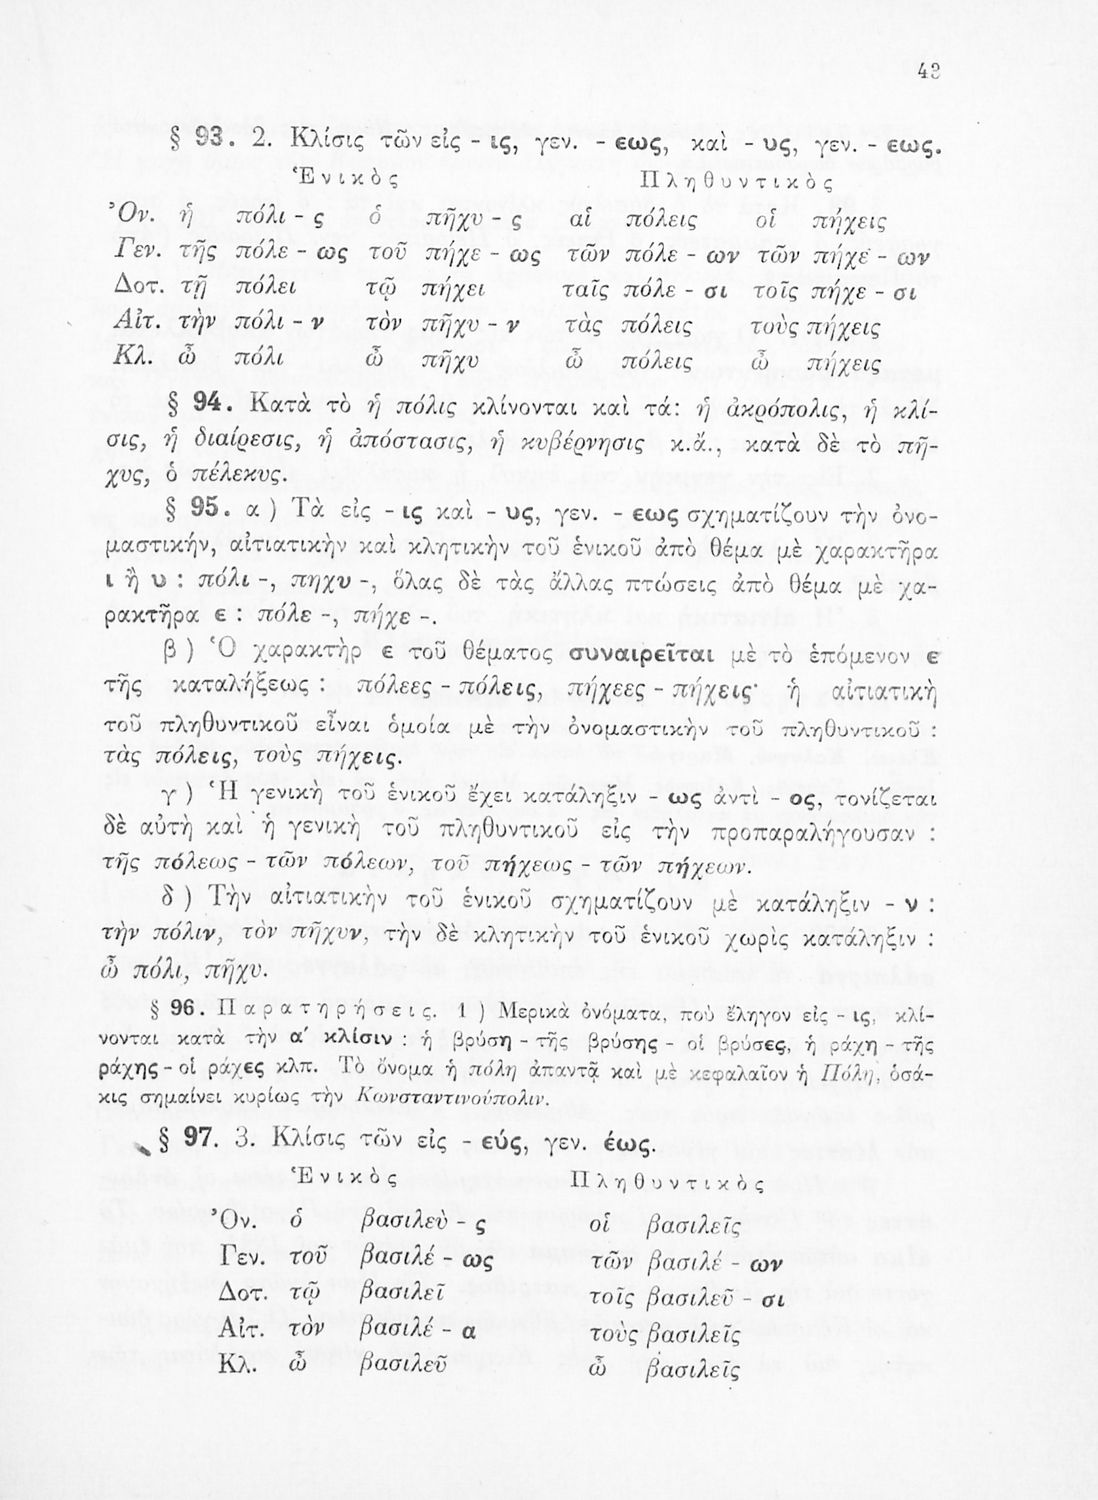 43
§ 93. 2. Κλίσις τῶν εἰς - ις, γεν. - εως, καὶ - υς, γεν. - εως.
Ἑνικὸς Πληθυντικὸς
Ὀν. ἡ πόλι - ς ὁ πῆχυ - ς αἱ πόλεις οἱ πήχεις
Γεν. τῆς πόλε - ως τοῦ πήχε - ως τῶν πόλε - ων τῶν πήχε - ων
Δοτ. τῇ πόλει τῷ πήχει ταῖς πόλε - σι τοῖς πήχε - σι
Αἰτ. τὴν πόλι - ν τὸν πῆχυ - ν τὰς πόλεις τοὺς πήχεις
Κλ. ὦ πόλι ὦ πῆχυ ὦ πόλεις ὦ πήχεις
§ 94. Κατὰ τὸ ἡ πόλις κλίνονται καὶ τά: ἡ ἀκρόπολις, ἡ κλί-
σις, ἡ διαίρεσις, ἡ ἀπόστασις, ἡ κυβέρνησις κ.ἄ., κατὰ δὲ τὸ πῆ-
χυς, ὁ πέλεκυς.
§ 95. α ) Τὰ εἰς - ις καὶ - υς, γεν. - εως σχηματίζουν τὴν ὀνο-
μαστικήν, αἰτιατικὴν καὶ κλητικὴν τοῦ ἑνικοῦ ἀπὸ θέμα μὲ χαρακτῆρα
ι ἢ υ : πόλι -, πηχυ -, ὅλας δὲ τὰς ἄλλας πτώσεις ἀπὸ θέμα μὲ χα-
ρακτῆρα ε : πόλε -, πήχε -.
β ) Ὁ χαρακτὴρ ε τοῦ θέματος συναιρεῖται μὲ τὸ ἑπόμενον ε
τῆς καταλήξεως : πόλεες - πόλεις, πήχεες - πήχεις· ἡ αἰτιατικὴ
τοῦ πληθυντικοῦ εἶναι ὁμοία μὲ τὴν ὀνομαστικὴν τοῦ πληθυντικοῦ :
τὰς πόλεις, τοὺς πήχεις.
γ ) Ἡ γενικὴ τοῦ ἑνικοῦ ἔχει κατάληξιν - ως ἀντὶ - ος, τονίζεται
δὲ αὐτὴ καὶ ἡ γενικὴ τοῦ πληθυντικοῦ εἰς τὴν προπαραλήγουσαν :
τῆς πόλεως - τῶν πόλεων, τοῦ πήχεως - τῶν πήχεων.
δ ) Τὴν αἰτιατικὴν τοῦ ἑνικοῦ σχηματίζουν μὲ κατάληξιν - ν :
τὴν πόλιν, τὸν πῆχυν, τὴν δὲ κλητικὴν τοῦ ἑνικοῦ χωρὶς κατάληξιν :
ὦ πόλι, πῆχυ.
§ 96. Παρατηρήσεις. 1 ) Μερικὰ ὀνόματα, ποὺ ἔληγον εἰς - ις, κλί-
νονται κατὰ τὴν α′ κλίσιν : ἡ βρύση - τῆς βρύσης - οἱ βρύσες, ἡ ράχη - τῆς
ράχης - οἱ ράχες κλπ. Τὸ ὄνομα ἡ πόλη ἀπαντᾷ καὶ μὲ κεφαλαῖον ἡ Πόλη, ὁσά-
κις σημαίνει κυρίως τὴν Κωνσταντινούπολιν.
§ 97. 3. Κλίσις τῶν εἰς - εύς, γεν. έως.
Ἑνικὸς Πληθυντικὸς
Ὀν. ὁ βασιλεὺ - ς οἱ βασιλεῖς
Γεν. τοῦ βασιλέ - ως τῶν βασιλέ - ων
Δοτ. τῷ βασιλεῖ τοῖς βασιλεῦ - σι
Αἰτ. τὸν βασιλέ - α τοὺς βασιλεῖς
Κλ. ὦ βασιλεῦ ὦ βασιλεῖς